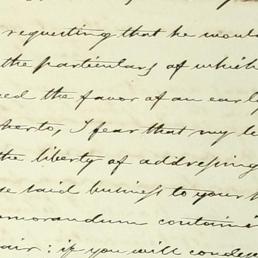 requesting that he would
the particulars of which
the favor of an early
I fear that my le
the liberty of addressing
said business to your
memorandum contain
air: if you will condes